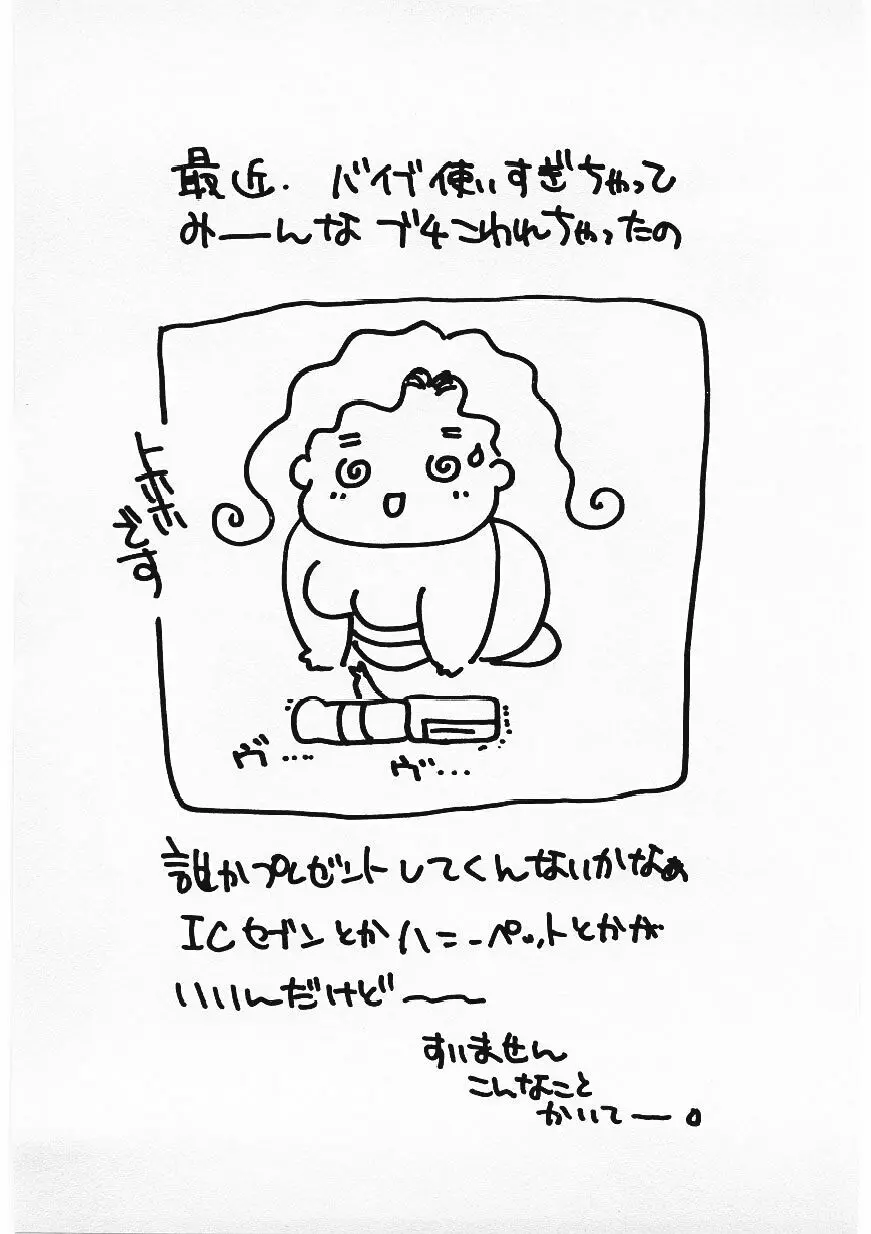 最近. バイブ使いすぎちゃって
みーーんなブチこわれちゃったの
です
ヴ…
ヴ…
誰かプレゼントしてくんないかなぁ
ICセブンとかハニーペットとかが
いいんだけど〜〜
すいません
こんなこと
かいてー。